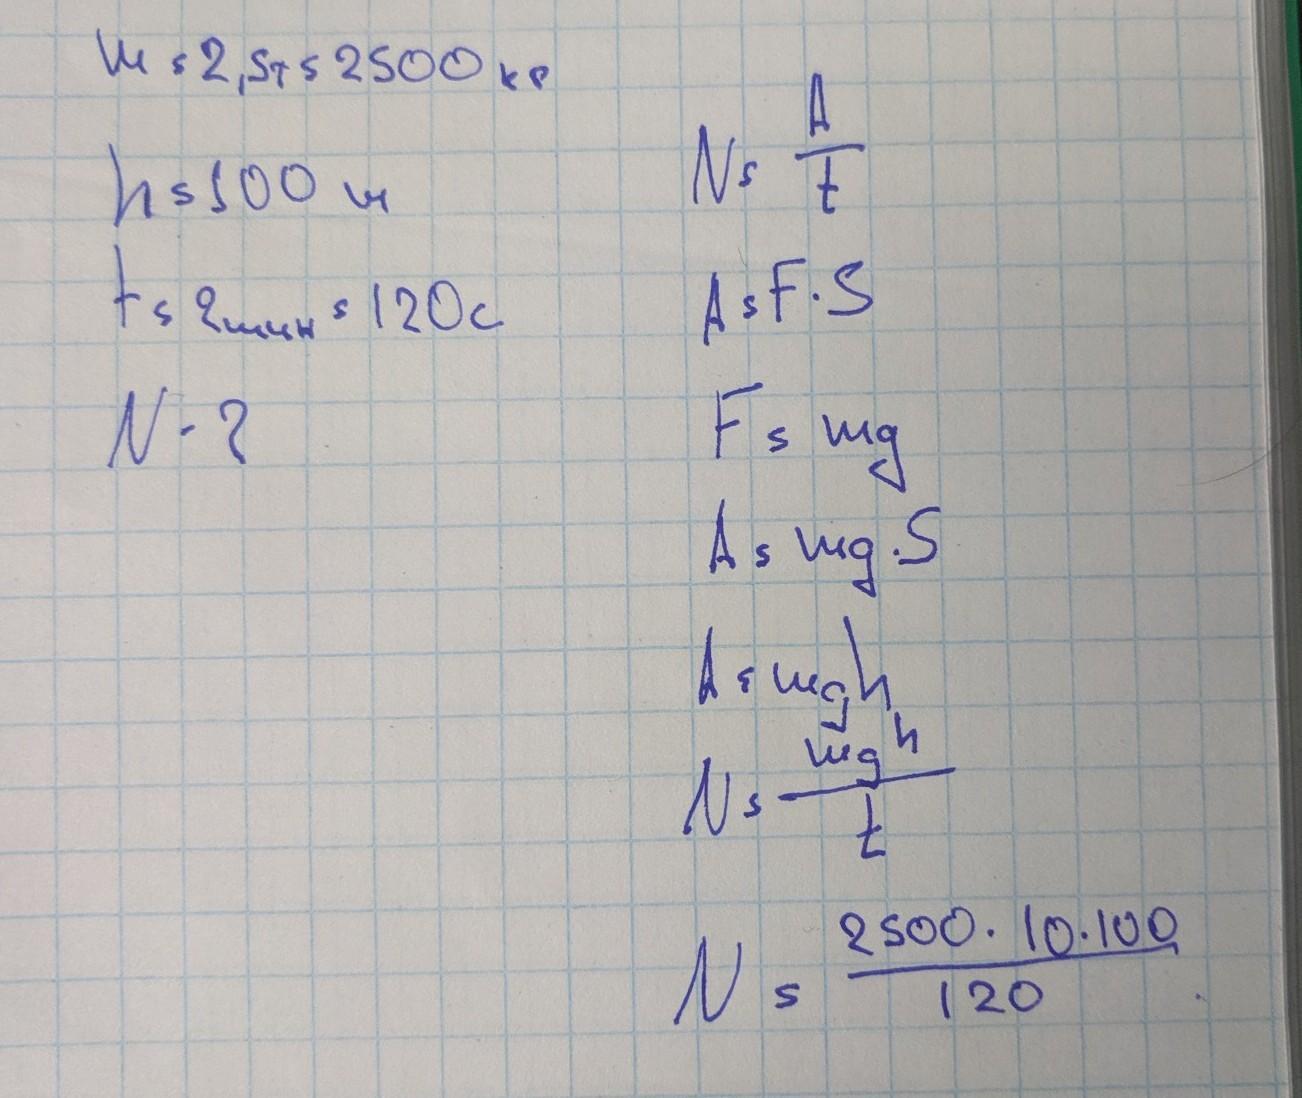 m = 2,5т = 2500 кг
h = 100 м
t = 2мин = 120с
N - ?
N = A/t
A = F · S
F = mg
A = mg · S
A = mgh
N = mgh/t
N = 2500 · 10 · 100/120